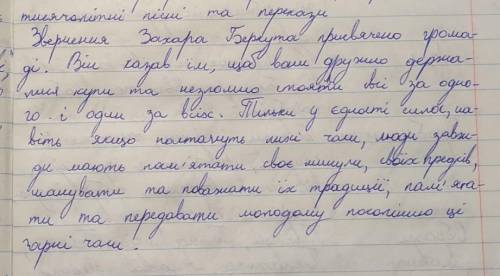 тисячолітні пісні та перекази
Звернення Захара Беркута присвячено грома-
ді. Він казав їм, щоб вони дружно держа-
лися купи та незломно стояти всі за одно-
го і один за всіх. Тільки у єдності сила, на-
віть якщо настануть лихі часи, люди завж-
ди мають пам'ятати своє минуле, своїх предків,
шанувати та поважати їх традиції, пам'ята-
ти та передавати молодому поколінню ці
гарні часи!